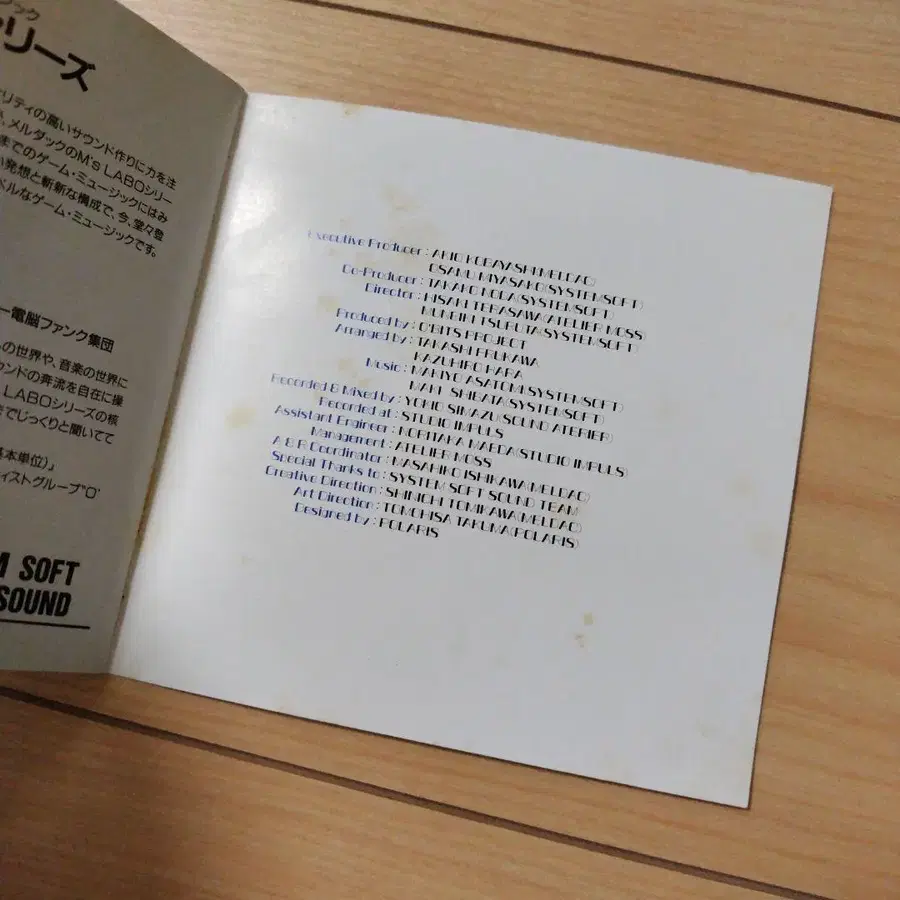 ジック
リーズ
ォリティの高いサウンド作りに力を注
、メルダックのM's LABOシリー
までのゲーム・ミュージックにはみ
い発想と斬新な構成で、今、堂々登
ベルなゲーム・ミュージックです。
ー電脳ファンク集団
の世界や、音楽の世界に
ウンドの奔流を自在に操
LABOシリーズの核
までじっくりと聞いて
本単位)」
ィストグループ"O'
M SOFT
SOUND
Executive Producer : AKIO KOBAYASHI(MELDAC)
OSAMU MIYASAKO(SYSTEMSOFT)
Co-Producer : TAKAKO NODA(SYSTEMSOFT)
Director : HISAKI TERASAWA(ATELIER MOSS)
TSURUTA(SYSTEMSOFT)
Produced by : O'BITS PROJECT
Arranged by : TAKASHI FRUKAWA
KAZUHIRO HARA
Music : MAKIYO ASATOMI(SYSTEMSOFT)
MAKI SHIBATA(SYSTEMSOFT)
Recorded & Mixed by : YOKIO SIMAZU(SOUND ATERIER)
Recorded at : STUDIO IMPULS
Assistant Engineer : NORITAKA MAEDA(STUDIO IMPULS)
Management : ATELIER MOSS
A & R Coordinator : MASAHIKO ISHIKAWA(MELDAC)
Special Thanks to : SYSTEM SOFT SOUND TEAM
Creative Direction : SHINICHI TOMIKAWA(MELDAC)
Art Direction : TOMOHISA TAKUMA(POLARIS)
Designed by : POLARIS